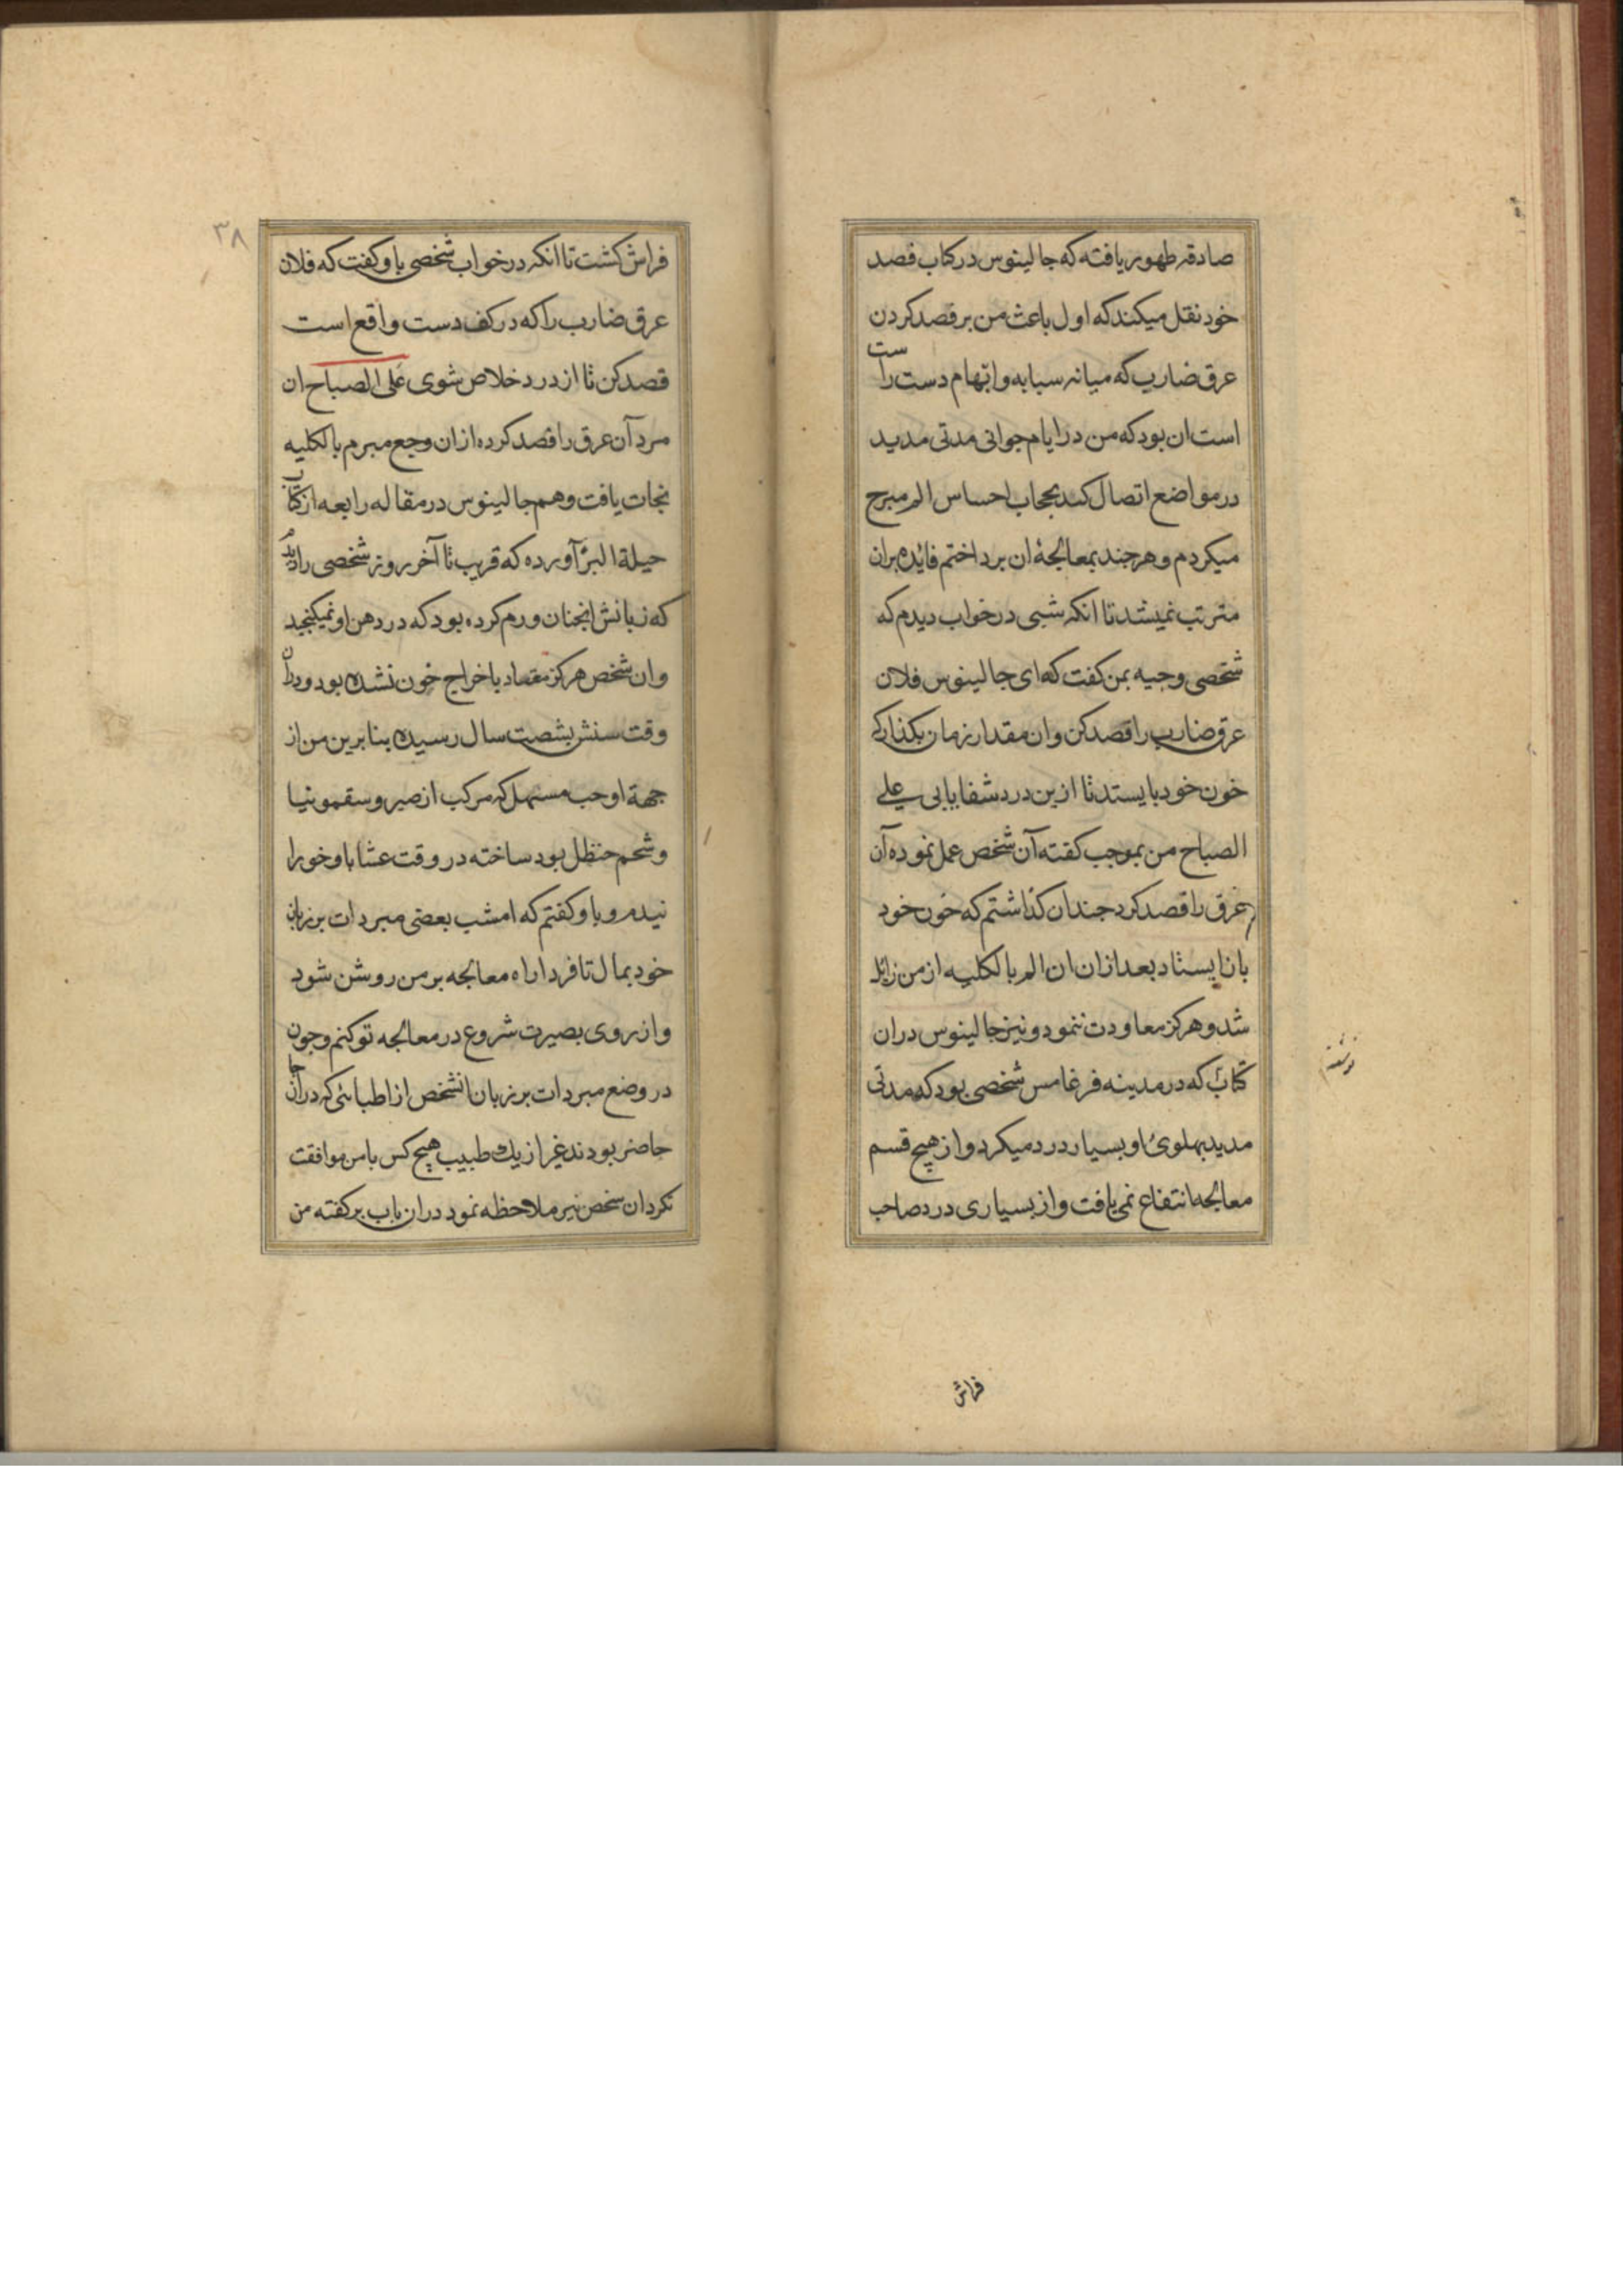 صادقه ظهور یافته که جالینوس در کتاب فصد
خود نقل میکند که اول باعث من بر قصد کردن
عرق ضارب که میانه سبابه و ابهام دست راست
است ان بود که من در ایام جوانی مدتی مدید
در مواضع اتصال کبد بحجاب احساس الم مبرح
میکردم و هر جند بمعالجهٔ ان برداختم فائده بران
مترتب نمیشد تا انکه شبی در خواب دیدم که
شخصی وجیه بمن کفت که ای جالینوس فلان
عرق ضارب را قصد کن و ان مقدار زمان بکذار که
خون خود بایستد تا ازین درد شفا یابی علی
الصباح من بموجب کفته آن شخص عمل نموده آن
عرق را قصد کرد جندان کذاشتم که خون خود
باز ایستاد بعد ازان ان الم بالکلیه از من زائل
شد و هرکز معاودت ننمود و نیز جالینوس دران
کتاب که در مدینه فرغامس شخصی بود که مدتی
مدید بهلوئ او بسیار درد میکرد و از هیچ قسم
معالجه انتفاع نمی یافت و از بسیاری درد صاحب
فراش
٣٨
فراش کشت تا انکه در خواب شخصی باو کفت که فلان
عرق ضارب را که در کف دست واقع است
قصد کن تا از درد خلاص شوی علی الصباح ان
مرد آن عرق را قصد کرده ازان وجع مبرم بالکلیه
نجات یافت و هم جالینوس در مقاله رابعه از کتاب
حیلة البرٔ آورده که قریب تا آخر روز شخصی را دیدم
که زبانش انجنان ورم کرده بود که در دهن او نمیکنجید
و ان شخص هرکز معتاد باخراج خون نشده بود و دران
وقت سنش بشصت سال رسیده بنا برین من از
جهة او حب مسهل که مرکب از صبر و سقمونیا
و شحم حنظل بود ساخته در وقت عشا باو خورا
نیدم و باو کفتم که امشب بعضی مبردات بر زبان
خود بمال تا فردا راه معالجه بر من روشن شود
و از روی بصیرت شروع در معالجه تو کنم و جون
در وضع مبردات بر زبان انشخص از اطبائی که در انجا
حاضر بودند غیر از یك طبیب هیچ کس با من موافقت
نکرد ان شخص نیر ملاحظه نمود دران باب بر کفته من